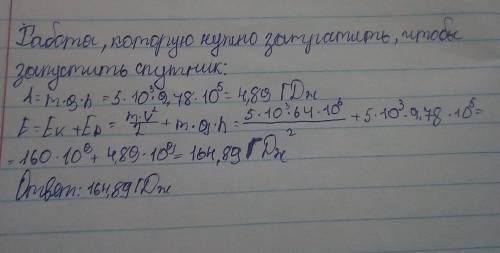 Работы, которую нужно затратить, чтобы
запустить спутник:
A = m·g·h = 5·10³·9,78·10⁵ = 4,89 ГДж
E = Eк + Eр = m·v²/2 + m·g·h = 5·10³·64·10⁶/2 + 5·10³·9,78·10⁵ =
= 160·10⁹ + 4,89·10⁹ = 164,89 ГДж
Ответ: 164,89 ГДж